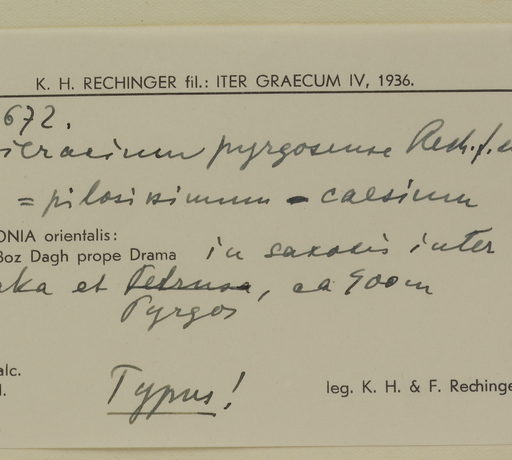 K. H. RECHINGER fil.: ITER GRAECUM IV, 1936.
672.
ieracium pyrgosense Rech. f. e
= pilosissimum - caesium
ONIA orientalis:
Boz Dagh prope Drama in saxosis inter
aka et Petrusa, ca 900m
Pyrgos
alc.
l.
Typus!
leg. K. H. & F. Rechinge